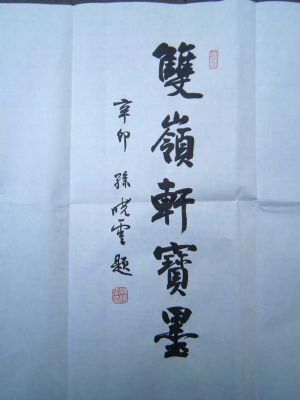 雙嶺軒寶墨
辛卯 孫曉雲題